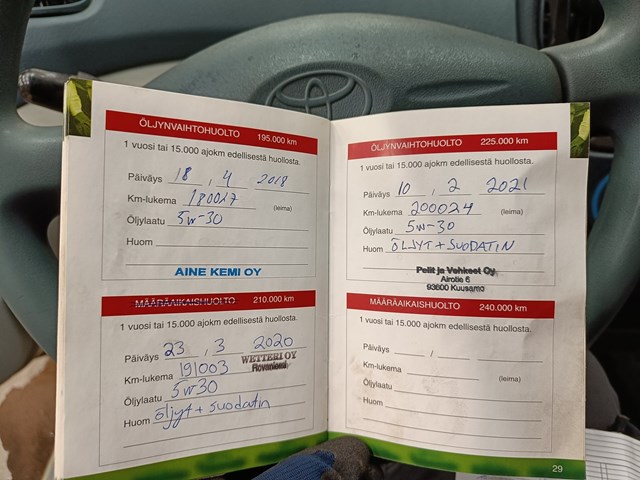 ÖLJYNVAIHTOHUOLTO 195.000 km
1 vuosi tai 15.000 ajokm edellisestä huollosta.
Päiväys 18 , 4 2018
Km-lukema 180027 (leima)
Öljylaatu 5w-30
Huom
AINE KEMI OY
MÄÄRÄAIKAISHUOLTO 210.000 km
1 vuosi tai 15.000 ajokm edellisestä huollosta.
Päiväys 23 , 3 2020
Km-lukema 191003 WETTERI OY
Rovaniemi
Öljylaatu 5w30
Huom öljyt + suodatin
ÖLJYNVAIHTOHUOLTO 225.000 km
1 vuosi tai 15.000 ajokm edellisestä huollosta.
Päiväys 10 , 2 2021
Km-lukema 200024 (leima)
Öljylaatu 5w-30
Huom ÖLJYT + SUODATIN
Pelit ja Vehkeet Oy
Airotie 6
93600 Kuusamo
MÄÄRÄAIKAISHUOLTO 240.000 km
1 vuosi tai 15.000 ajokm edellisestä huollosta.
Päiväys ,
Km-lukema (leima)
Öljylaatu
Huom
29